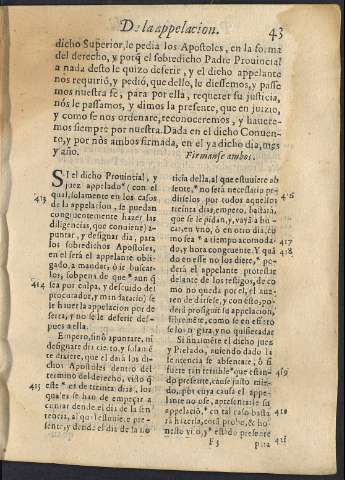 De la appelacion.
43
dicho Superior, le pedia los Apostoles, en la forma
del derecho, y porq̃ el sobredicho Padre Provincial
a nada desto le quizo deferir, y el dicho appelante
nos requirió, y pedió, que dello, le diessemos, y passe
mos nuestra fe, para por ella, requerer su justicia,
nós le passamos, y dimos la presente, que en juizio,
y como se nos ordenare, reconoceremos, y havere-
mos siempre por nuestra. Dada en el dicho Conven-
to, y por nós ambos firmada, en el ya dicho dia, mes
y año.
Firmanse ambos.
SI el dicho Provincial, y
juez appelado* (con el
413
qual, solamente en los casos
de la appelacion, se puedan
congruentemente hazer las
diligencias, que conviene) a-
puntar, y designar dia, para
los sobredichos Apostoles,
en el será el appelante obli-
gado, a mandar, ò ir buscar-
los, sopena de que* aun q̃
414
sea por culpa, y descuido del
procurador, y mandatario) se
le havrá la appelacion por de
serta, y no se le deferir des-
pues a ella.
Empero, sinó apuntare, ni
designare dia cierto, y solamẽ
te dixere, que el dará los di-
chos Apostoles dentro del
termino del derecho, visto q̃
415
este* es de treinta dias, los
quales se han de empeçar a
contar dende el dia de la sen
tencia, al que estuviere pre-
sente, y dende el dia de la no
ticia della, al que estuviere ab
sente,* no será necessario pe-
416
dirselos por todos aquellos
treinta dias, empero, bastará,
que se le pidan, y vaya a bus-
car, en vno, ò en otro dia, co
mo sea* a tiempo acomoda-
417
do, y hora congruente. Y quã
418
do en esse no los diere,* po-
derá el appelante protestar
delante de los testigos, de co
mo no queda por el, el aver-
de dirsele, y con esto, po-
derá prosiguir su appelacion,
libremẽte, como se en efecto
se lo negara, y no quisiera dar
Si finalmẽte el dicho juez
y Prelado, aviendo dado la
sentencia se absentare, ò si
fuere tan terrible* que estan-
419
do presente, cause justo mie-
do, por cuya causa el appe-
lante no ose, apresentarle su
appelaciõ,* en tal caso basta-
420
rá hazerla, corã probe, & ho-
nesto viro, y* estãdo presente
421
F 3
para